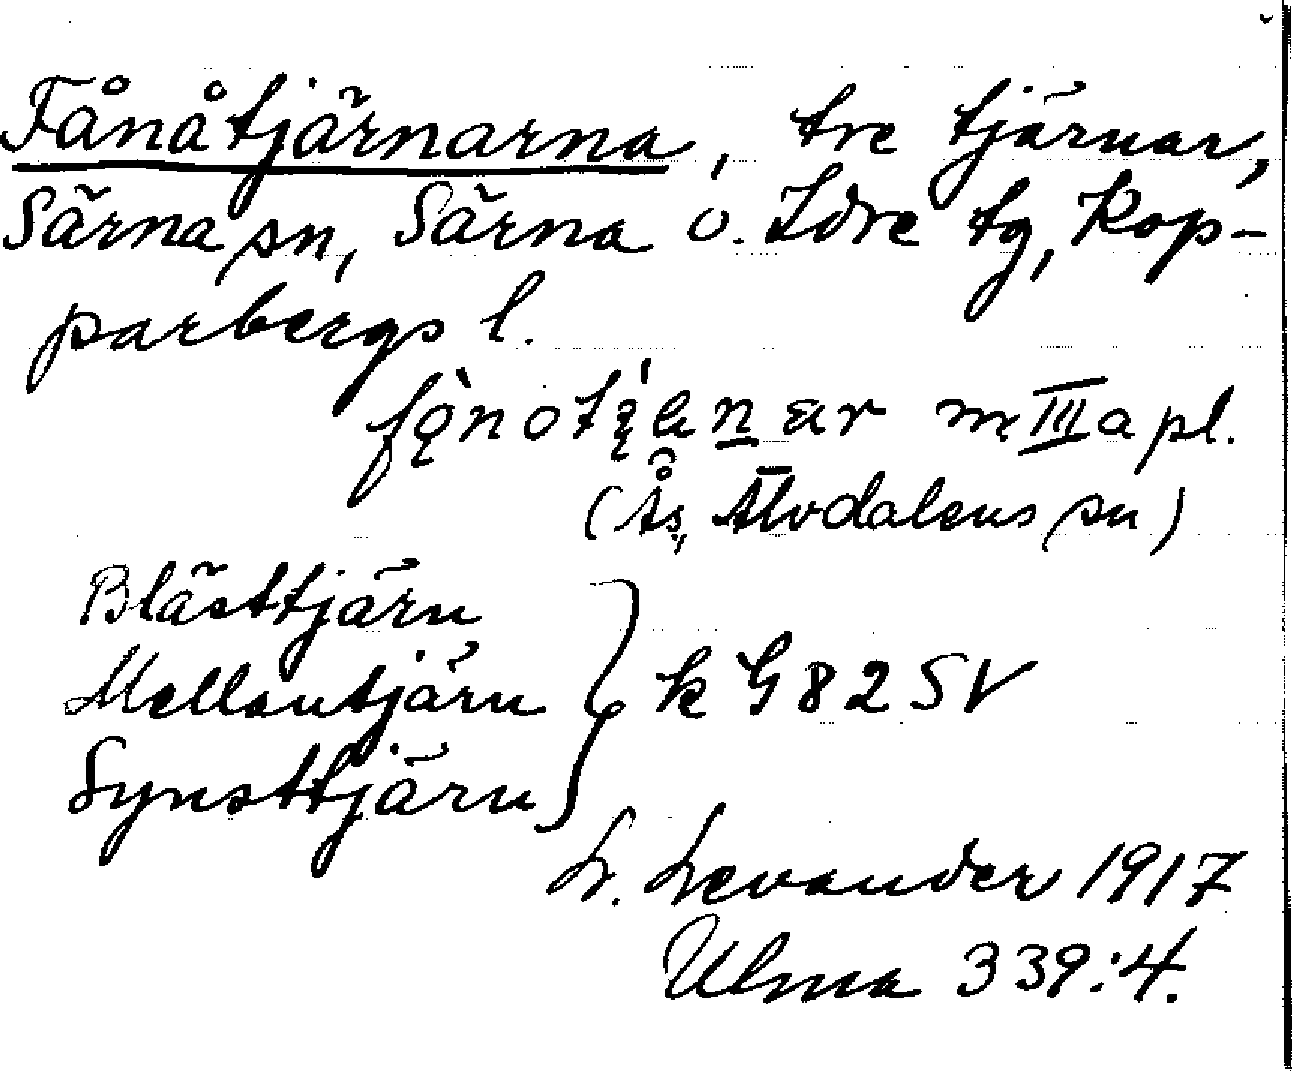 Fånåtjärnarna, tre tjärnar,
Särna sn, Särna o. Idre tg, Kop-
parbergs l.
m III a pl.
(Ås, Älvdalens sn)
Blästtjärn
Mellantjärn
Synsttjärn
k G 82 SV
L. Levander 1917
Ulma 339:4.